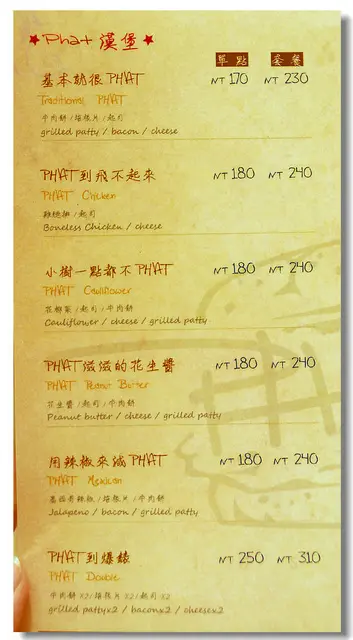 ★Phat 漢堡★
單點 套餐
基本款很PHAT NT 170 NT 230
Traditional PHAT
牛肉餅/培根片/起司
grilled patty / bacon / cheese
PHAT到飛不起來 NT 180 NT 240
PHAT Chicken
雞腿排/起司
Boneless Chicken / cheese
小樹一點都不PHAT NT 180 NT 240
PHAT Cauliflower
花椰菜/起司/牛肉餅
Cauliflower / cheese / grilled patty
PHAT滋滋的花生醬 NT 180 NT 240
PHAT Peanut Butter
花生醬/起司/牛肉餅
Peanut butter / cheese / grilled patty
用辣椒來減PHAT NT 180 NT 240
PHAT Mexican
墨西哥辣椒/培根片/牛肉餅
Jalapeno / bacon / grilled patty
PHAT到爆錶 NT 250 NT 310
PHAT Double
牛肉餅X2/培根片X2/起司X2
grilled pattyx2 / baconx2 / cheesex2